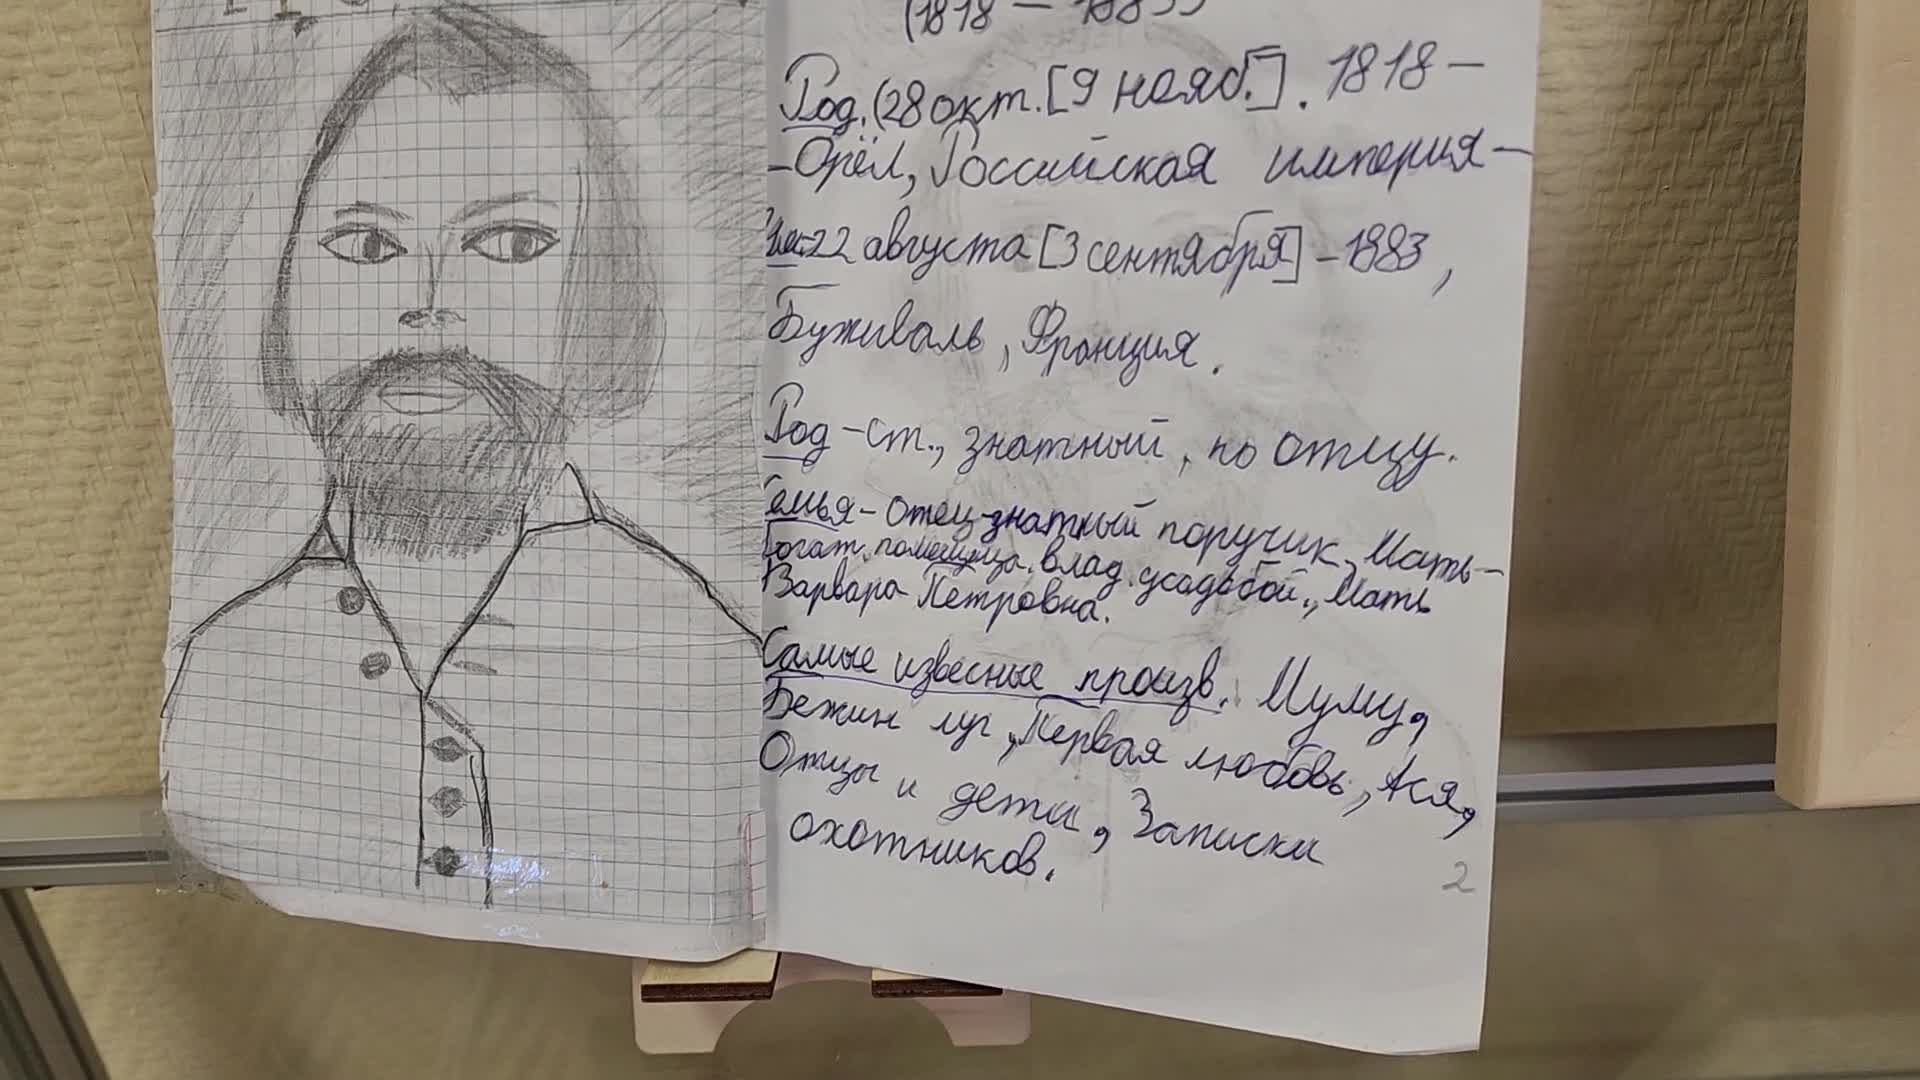 (1818 - 1883)
Род. (28 окт. [9 нояб.]. 1818 -
- Орёл, Российская империя -
22 августа [3 сентября] - 1883,
Буживаль, Франция.
Род - ст., знатный, по отцу.
Семья - отец-знатный поручик, Мать -
богат. помещица. влад. усадьбой., Мать
Варвара Петровна.
Самые извесные произв. Муму,
Бежин луг, Первая любовь, Ася,
Отцы и дети, Записки
охотников.
2